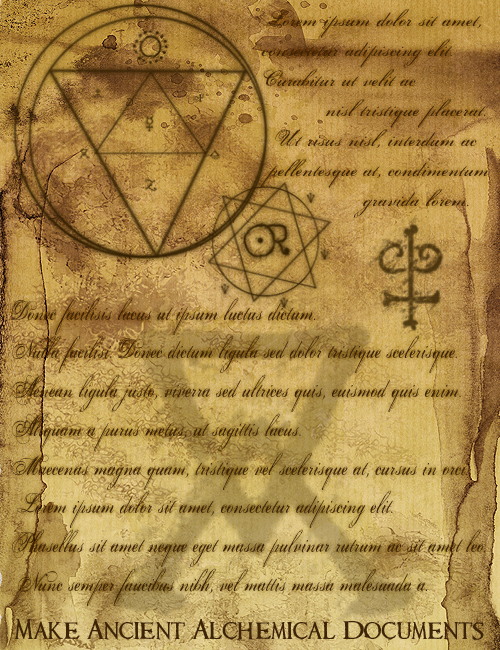 Lorem ipsum dolor sit amet,
consectetur adipiscing elit.
Curabitur ut velit ac
nisl tristique placerat.
Ut risus nisl, interdum ac
pellentesque at, condimentum
gravida lorem.
OR
Donec facilisis lacus ut ipsum luctus dictum.
Nulla facilisi. Donec dictum ligula sed dolor tristique scelerisque.
Aenean ligula justo, viverra sed ultrices quis, euismod quis enim.
Aliquam a purus metus, ut sagittis lacus.
Maecenas magna quam, tristique vel scelerisque at, cursus in orci.
Lorem ipsum dolor sit amet, consectetur adipiscing elit.
Phasellus sit amet neque eget massa pulvinar rutrum ac sit amet leo.
Nunc semper faucibus nibh, vel mattis massa malesuada a.
Make Ancient Alchemical Documents